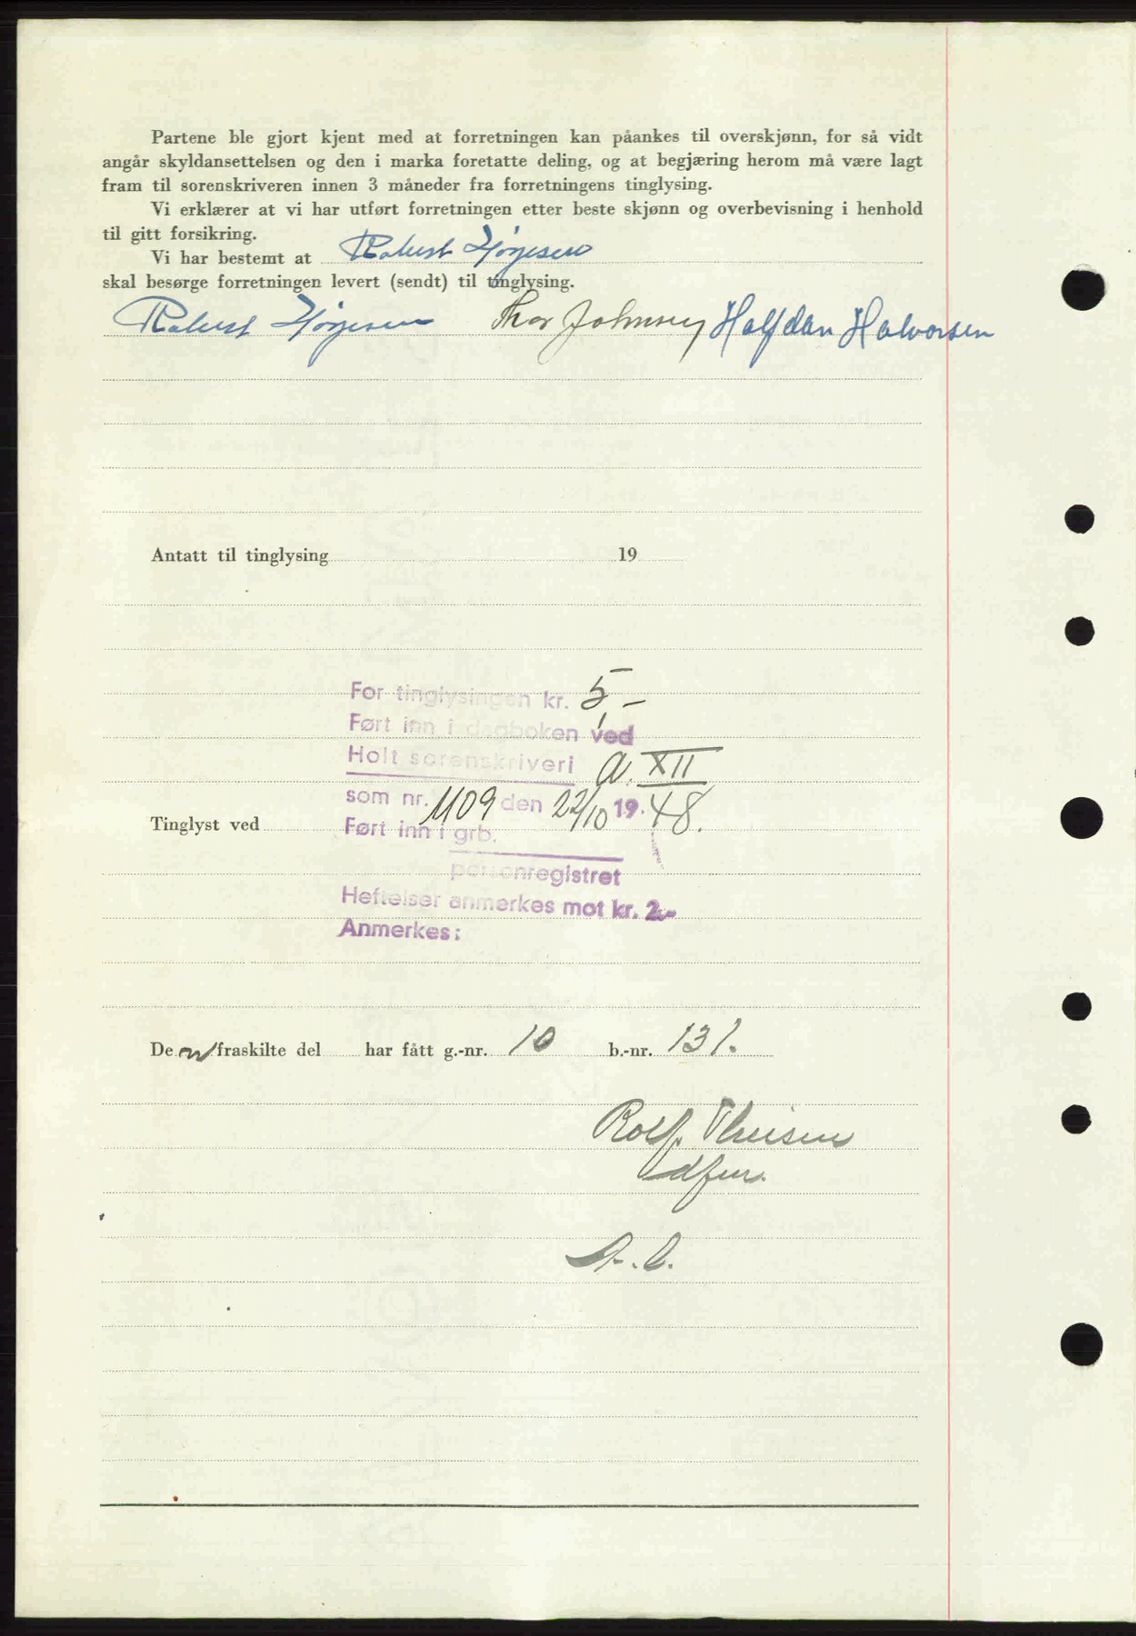 Partene ble gjort kjent med at forretningen kan påankes til overskjønn, for så vidt
angår skyldansettelsen og den i marka foretatte deling, og at begjæring herom må være lagt
fram til sorenskriveren innen 3 måneder fra forretningens tinglysing.
Vi erklærer at vi har utført forretningen etter beste skjønn og overbevisning i henhold
til gitt forsikring.
Vi har bestemt at Robert Jørgesen
skal besørge forretningen levert (sendt) til tinglysing.
Robert Jørgesen Thor Johnsen Halfdan Halvorsen
Antatt til tinglysing 19
For tinglysingen kr. 5,-
Ført inn i dagboken ved
Holt sorenskriveri a. XII
som nr. 1109 den 22/10 19 48.
Tinglyst ved
Ført inn i grb.
personregistret
Heftelser anmerkes mot kr. 2.-
Anmerkes:
De n/fraskilte del har fått g.-nr. 10 b.-nr. 131.
Rolf